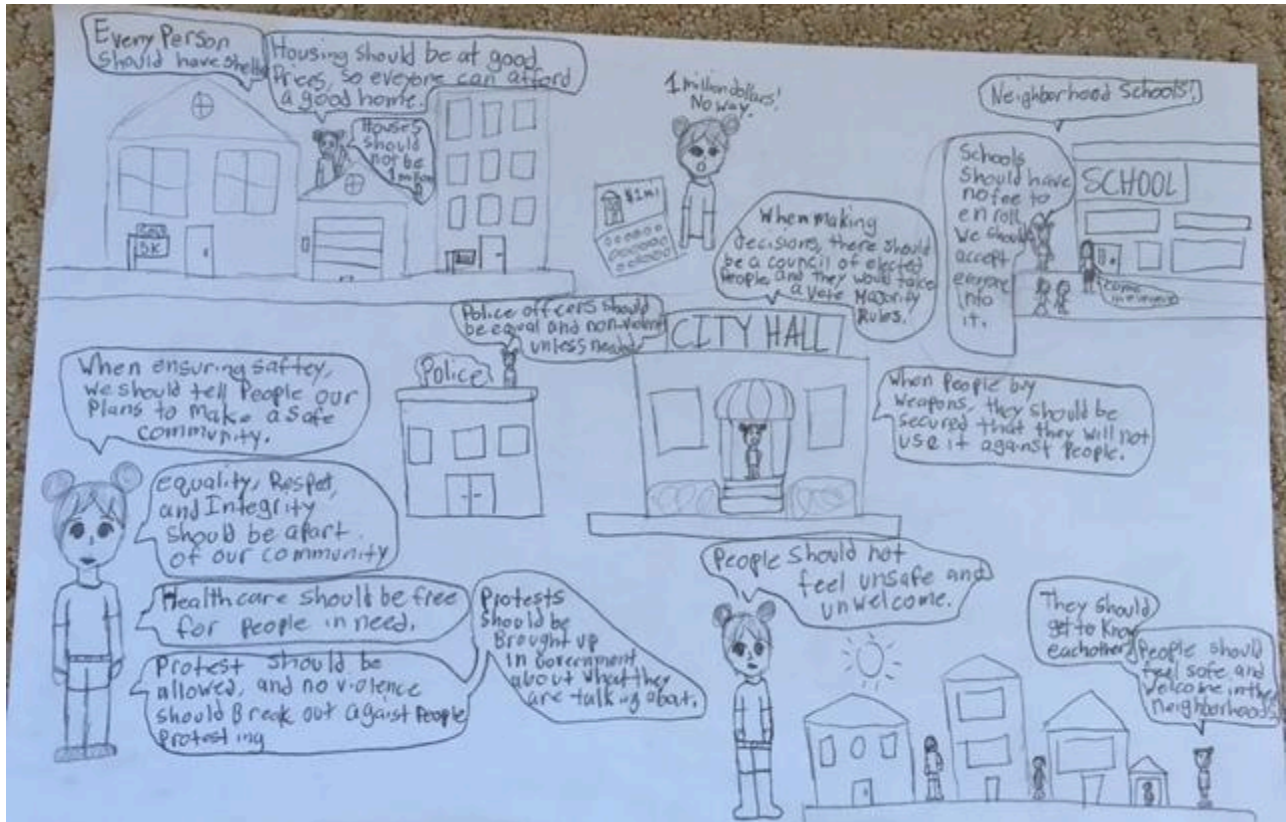 Every Person
should have shelter
Housing should be at good
Prices, so eveyone can afford
a good home.
Houses
should
not be
1 million
5K
1 million dollars!
No way.
$1 mil
Neighborhood Schools!
Schools
should have
no fee to
enroll.
We should
accept
everyone
into
it.
SCHOOL
When making
decisions, there should
be a council of elected
People, and they would take
a vote Majority
Rules.
CITY HALL
Police officers should
be equal and non-violent
unless needed
Police
When People buy
weapons, they should be
secured that they will not
use it against People.
When ensuring saftey,
we should tell People our
Plans to make a safe
community.
equality, Respet,
and Integrity
should be apart
of our community
Healthcare should be free
for people in need.
Protest should be
allowed, and no violence
should Break out agaist People
Protesting
Protests
should be
Brought up
in Government
about what they
are talking about.
People should not
feel unsafe and
unwelcome.
They should
get to know
eachother
People should
feel safe and
welcome in the
neighborhoods